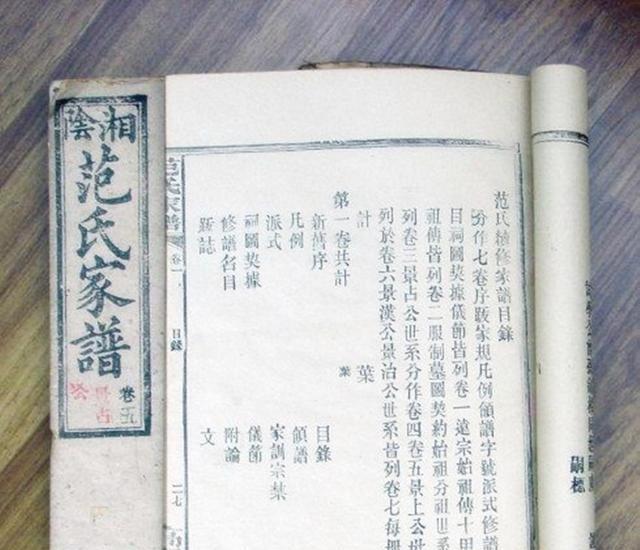 湘陰
范氏家譜
卷五
景占
公
范氏續修家譜目錄
分作七卷序跋家規凡例領譜字號派式修譜
目祠圖契據儀節皆列卷一遠宗始祖傳十甲
祖傳皆列卷二服制墓圖契約始祖分祖世系
列卷三景占公世系分作卷四卷五景上公世
列於卷六景漢公景治公世系皆列卷七每冊
計 葉
第一卷共計 葉
新舊序 目錄
凡例 領譜
派式 家訓宗禁
祠圖契據 儀節
修譜名目 附論
誌 文
范氏家譜 卷一 目錄 二七
嗣標